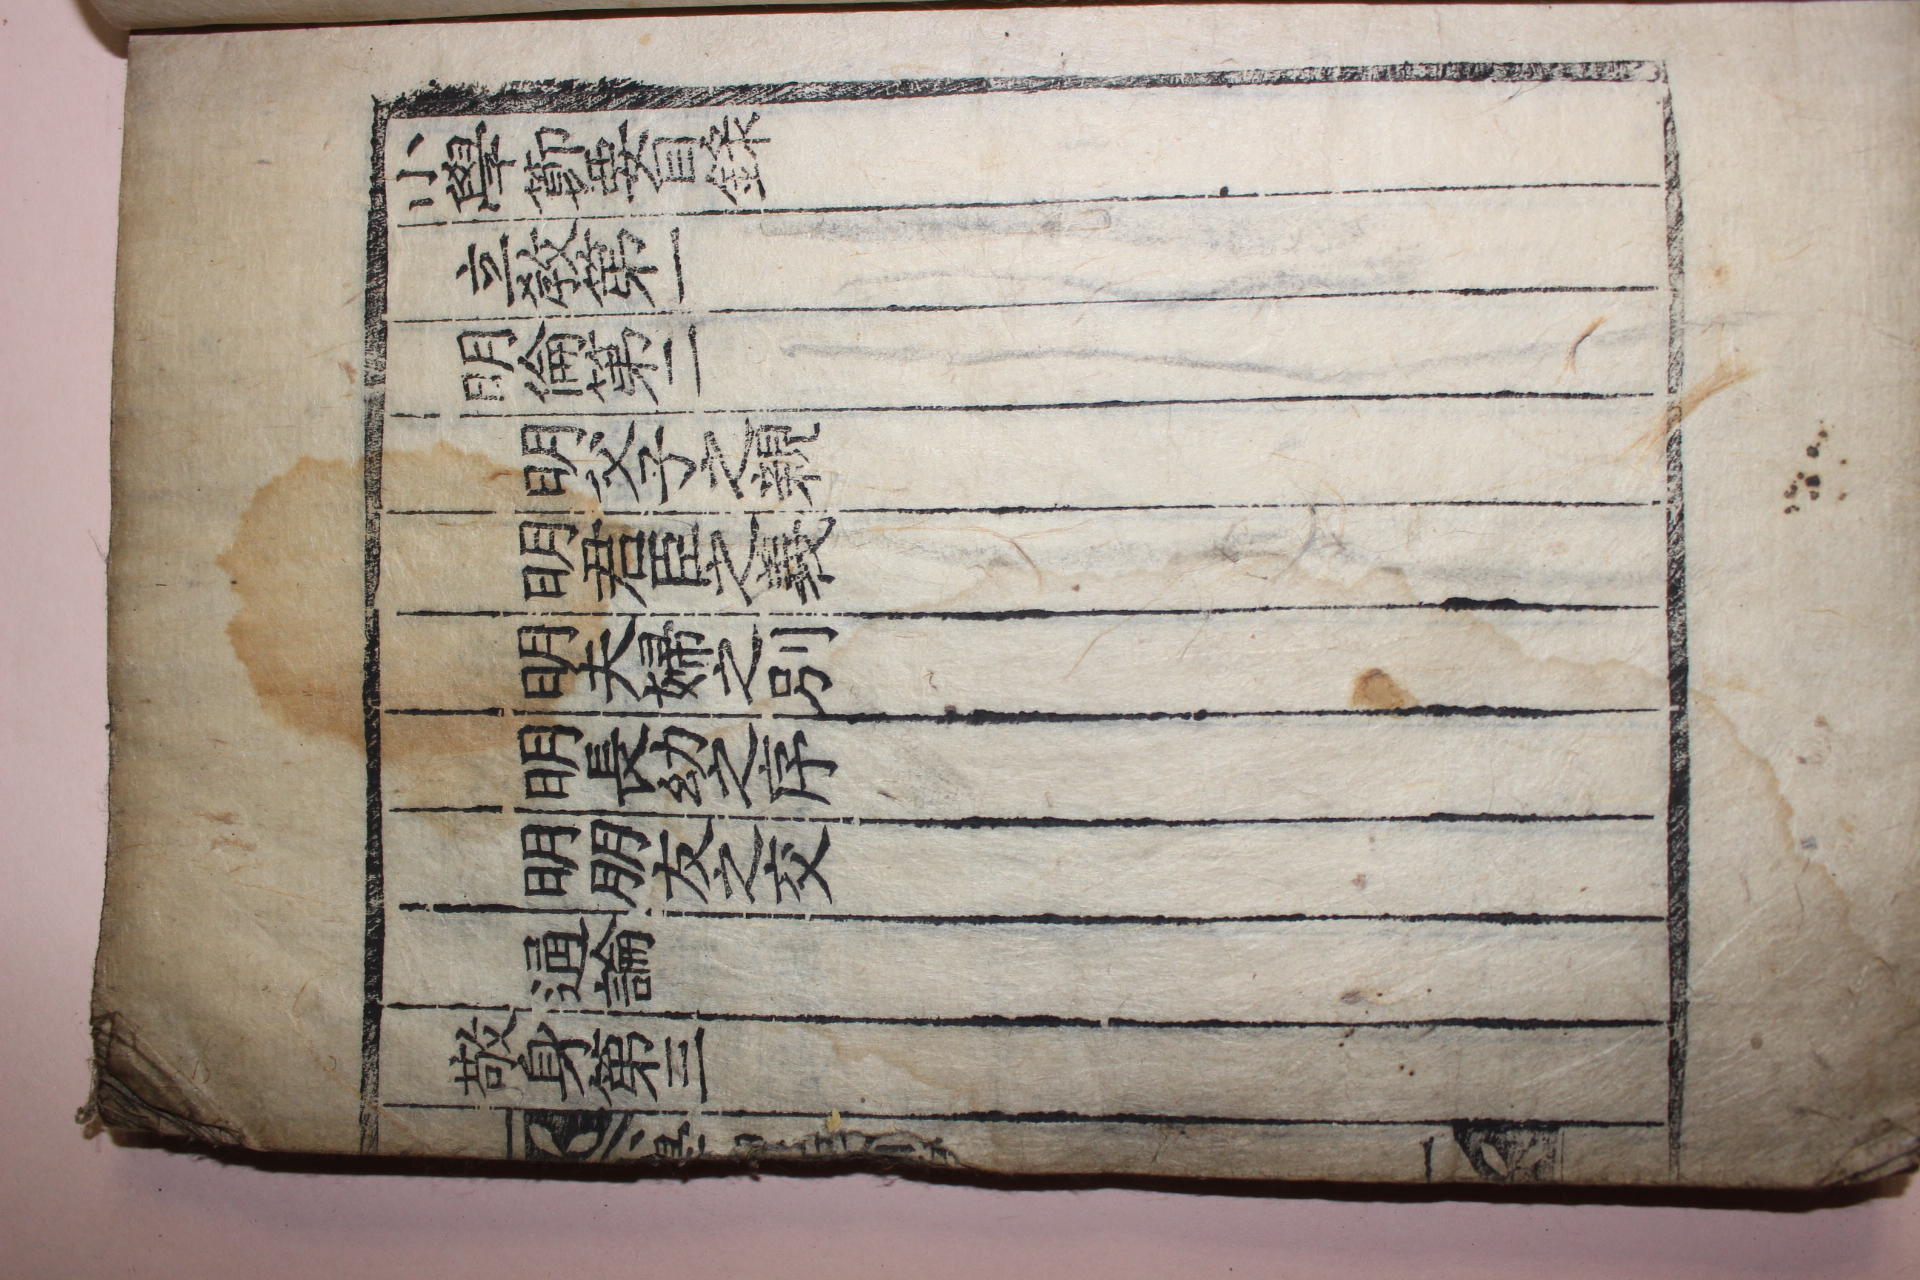 小學節要目錄
立敎第一
明倫第二
明父子之親
明君臣之義
明夫婦之別
明長幼之序
明朋友之交
通論
敬身第三